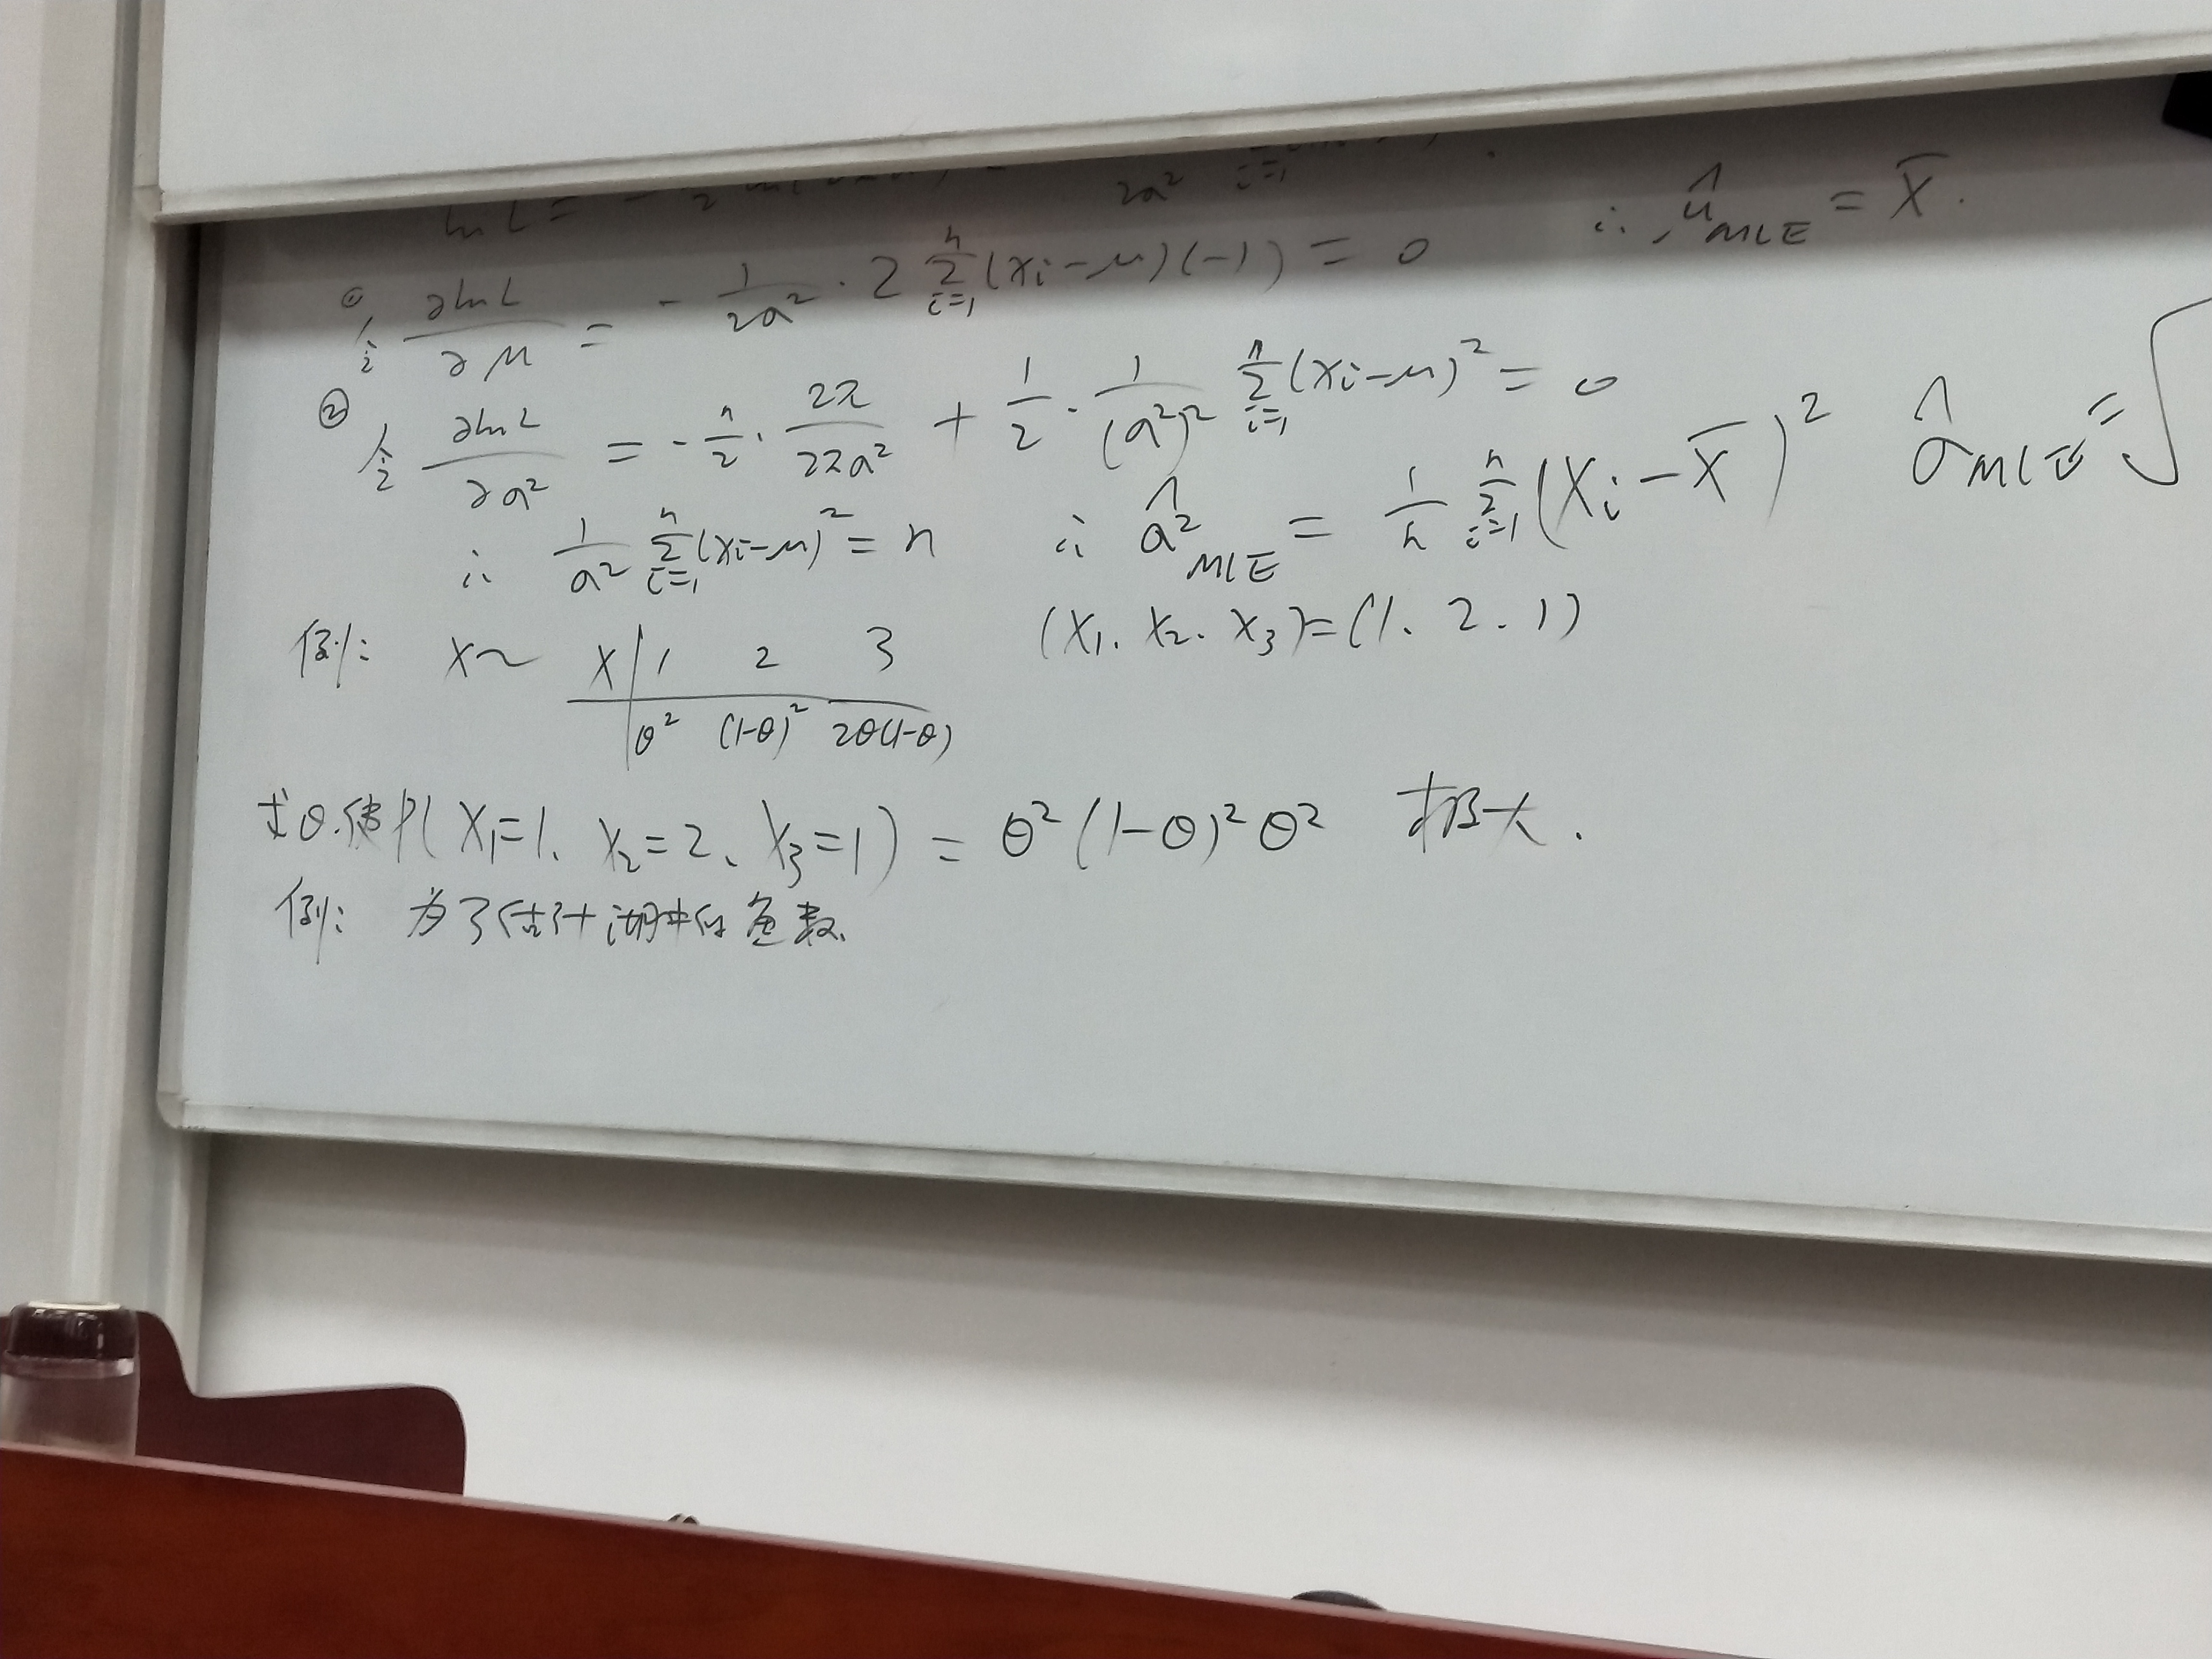 ln L = - 2 2σ² i=1
① 令 ∂lnL/∂μ = - 1/2σ² · 2 Σ_{i=1}^{n} (xi-μ)(-1) = 0 ∴ μ̂_MLE = X̄.
② 令 ∂lnL/∂σ² = - n/2 · 2π/2πσ² + 1/2 · 1/(σ²)² Σ_{i=1}^{n} (xi-μ)² = 0
∴ 1/σ² Σ_{i=1}^{n} (xi-μ)² = n ∴ σ̂²_MLE = 1/n Σ_{i=1}^{n} (Xi-X̄)² σ̂_MLE = √
例: X~ X | 1 2 3 (X₁、X₂、X₃)=(1、2、1)
θ² (1-θ)² 2θ(1-θ)
求θ.使P(X₁=1、X₂=2、X₃=1) = θ²(1-θ)²θ² 极大.
例: 为了估计湖中的鱼数、